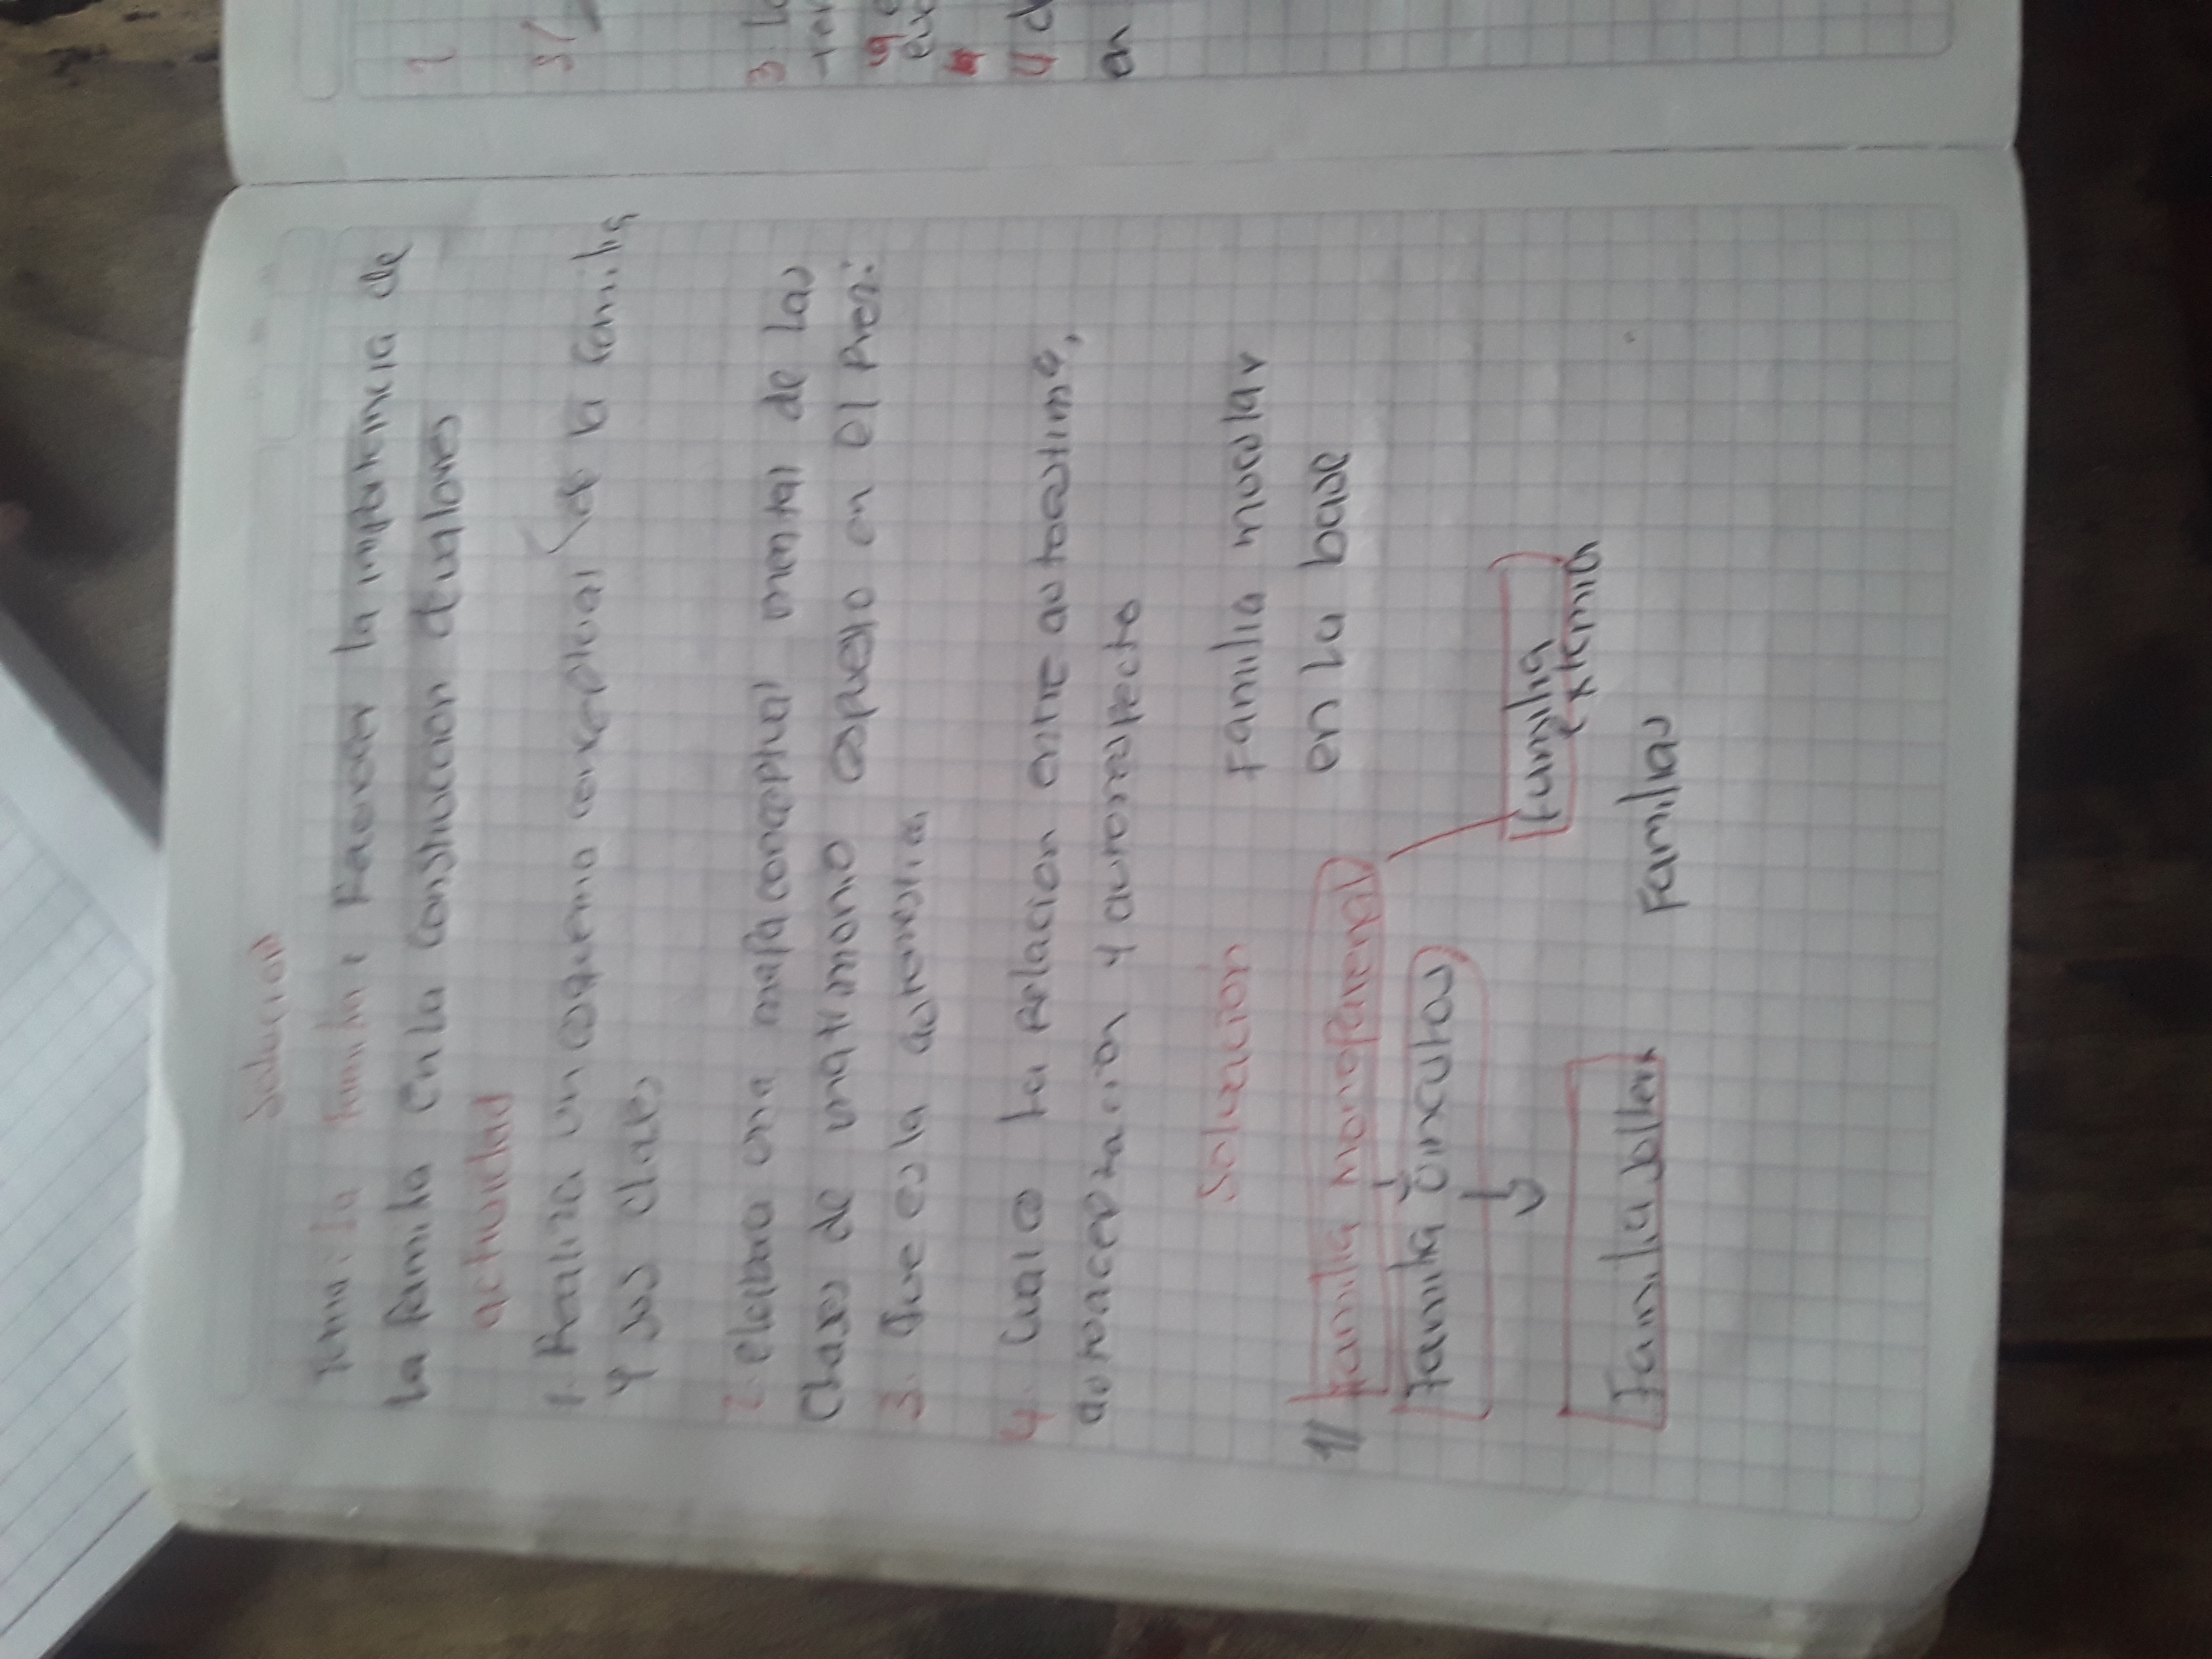 Solucion
Tema: la familia: Reconocer la importancia de
la familia en la construccion de valores
actividad
1. Realiza un esquema conceptual de la familia
y sus clases
2. elabora una mapa conceptual mental de las
Clases de matrimonio espuesto en el presi:
3. Que es la
4. Cual es la relacion entre autoestima,
autoaceptacion y autorrespecto
Solución
Familia nuclear
en la base
1/ Familia monoparental
Familia
Familia extensa
Familia
Familias
3. Lo
4
en